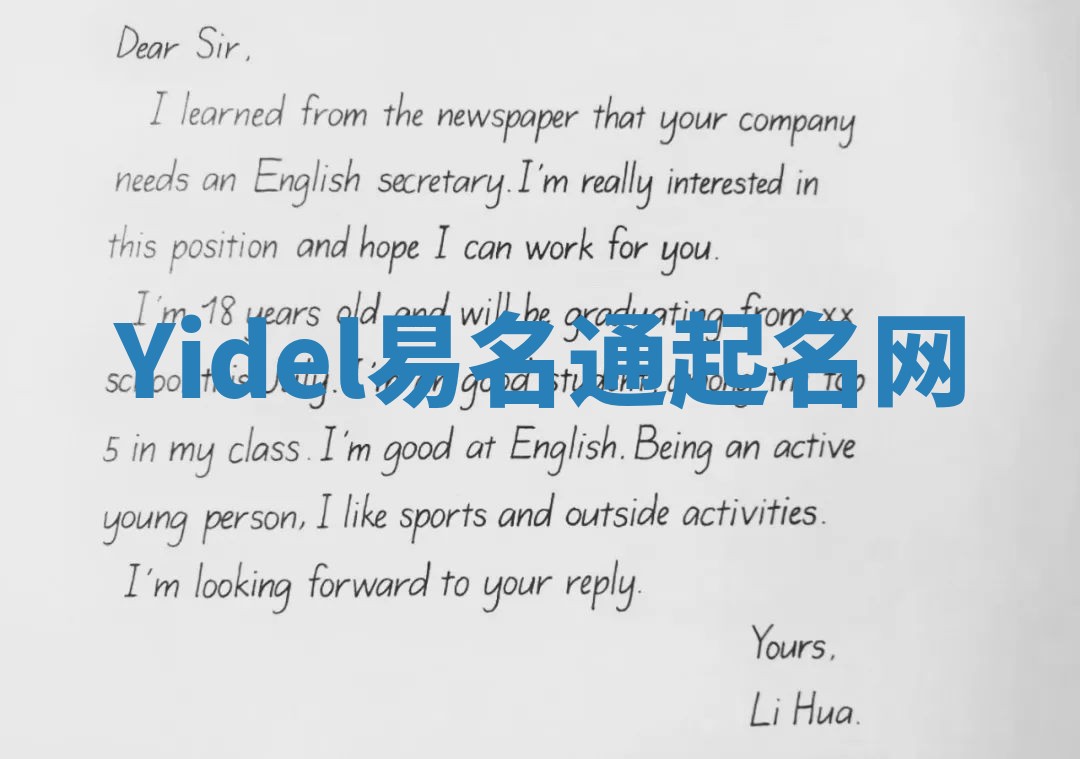 Dear Sir,
I learned from the newspaper that your company
needs an English secretary. I'm really interested in
this position and hope I can work for you.
I'm 18 years old and will be graduating from xx
Yidel易名通起名网
school this July. I'm a good student, among the top
5 in my class. I'm good at English. Being an active
young person, I like sports and outside activities.
I'm looking forward to your reply.
Yours,
Li Hua.